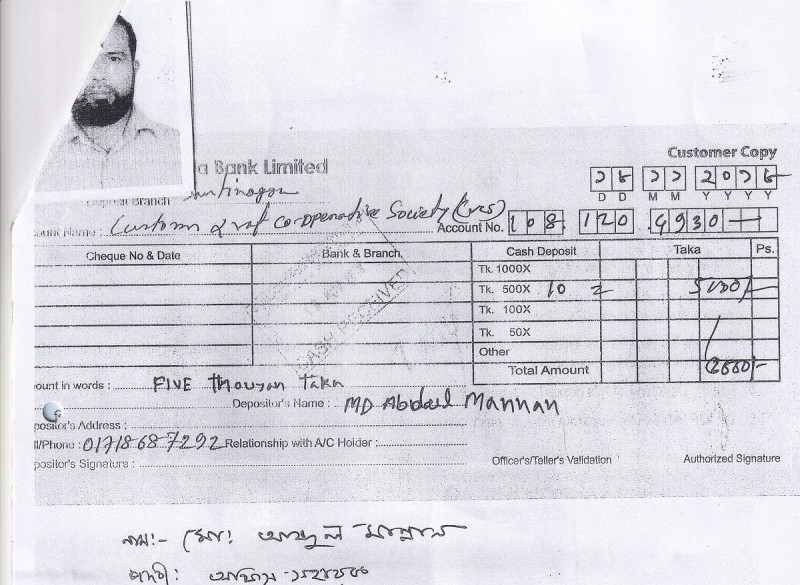 Customer Copy
a Bank Limited
১৮ ১১ ২০১৮
D D M M Y Y Y Y
Deposit Branch
ount Name : Customs & vat Co-opperative Society (vcs) Account No. 108 120
Cheque No & Date Bank & Branch Cash Deposit Taka Ps.
Tk. 1000X
Tk. 500X 10 = 5000/-
Tk. 100X
Tk. 50X
Other
Total Amount
CASH RECEIVED
ount in words : FIVE Thousan Taka
Depositor's Name : MD Abdul Mannan
positor's Address :
ll/Phone : 01718687292 Relationship with A/C Holder :
positor's Signature : Officer's/Teller's Validation Authorized Signature
নাম:- মো: আব্দুল মান্নান
পদবী: